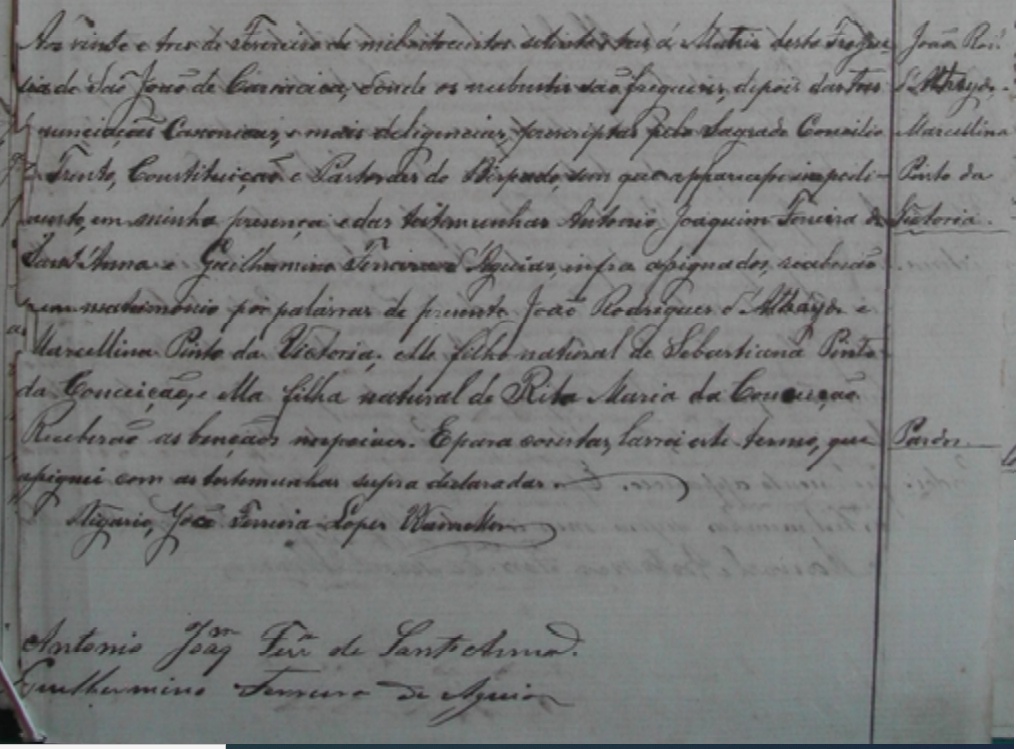 Aos vinte e tres de Fevereiro de mil oitocentos setenta e tres á Matriz desta Fregue
sia de São João de Cariacica, donde os nubentes são freguezes, depois das tres
nunciações Canonicas, e mais deligencias prescriptas pelo Sagrado Concilio
Trento, Constituição e Pastoraes do Bispado, sem que apparecesse impedi-
mento, em minha presença e das testemunhas Antonio Joaquim Ferreira de
Sant'Anna e Guilhermino Ferreira d'Aguiar, infra assignados, receberão
em matrimonio por palavras de presente João Rodrigues d'Athayde e
Marcellina Pinto da Victoria, elle filho natural de Sebastiana Pinto
da Conceição, e ella filha natural de Rita Maria da Conceição.
Receberão as bençãos nupciaes. E para constar, lavrei este termo, que
assignei com as testemunhas supra declaradas.
Vigario, João Ferreira Lopes
Antonio Joaqm Ferrª de Sant'Anna.
Guilhermino Ferreira de Aguiar
João Roiz
d'Athayde.
Marcellina
Pinto da
Victoria.
Pardos.